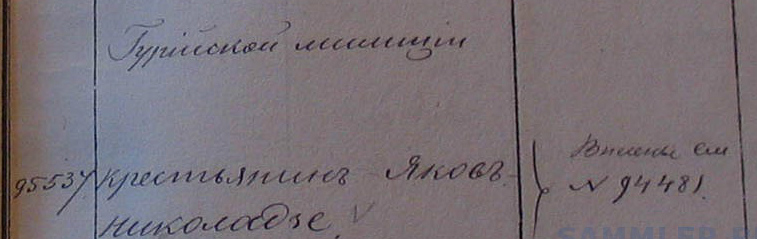 Гурійской милиціи
95537 крестьянинъ Яковъ
Николадзе.
см
№ 94481.
SAMMLER.RU